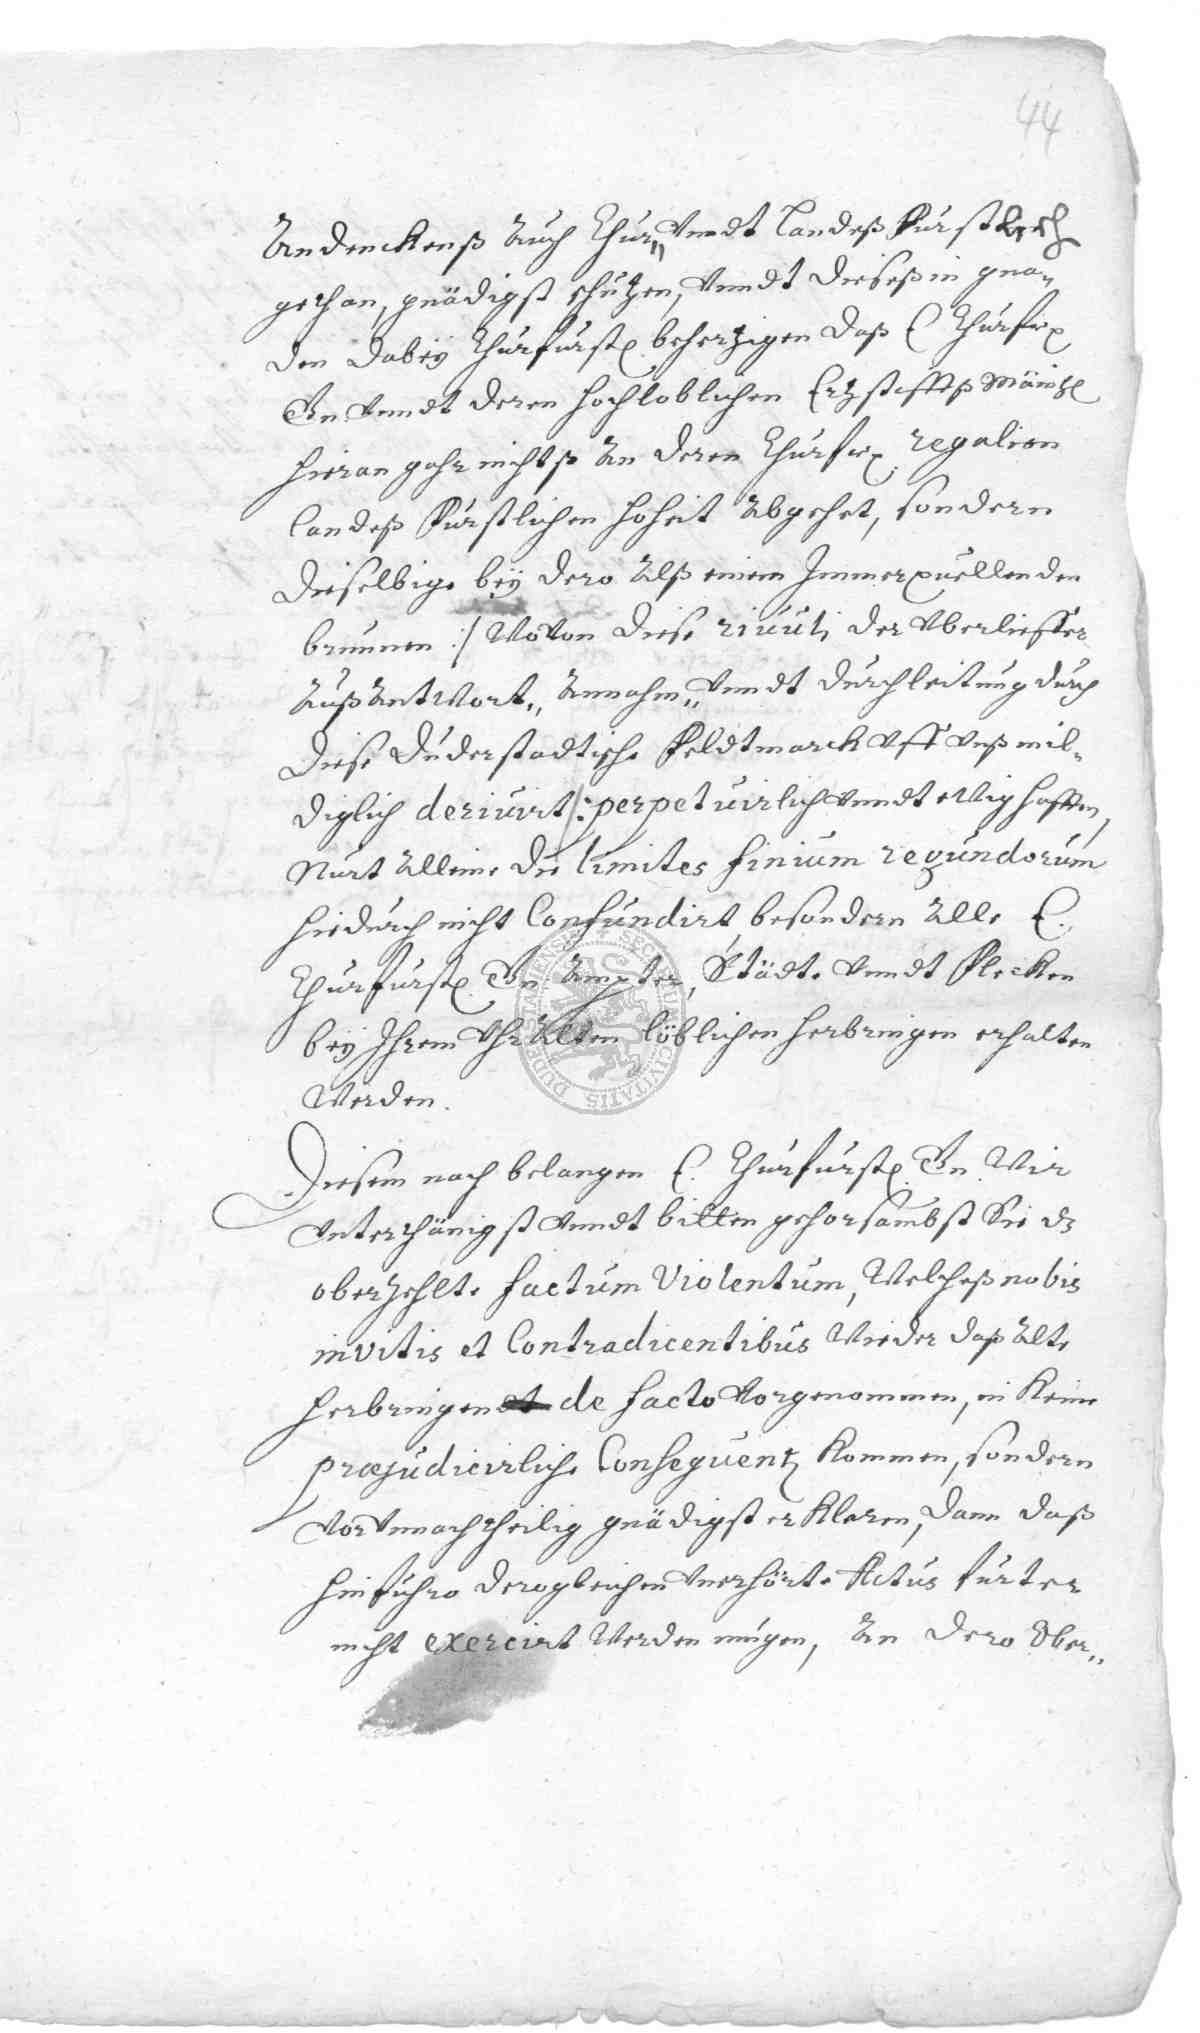 44
Andenckenß Auch Chur„ Vnndt Landeß Furstlich
gethan, gnädigst schützen, Vnndt dieseß in gna„
den dabeÿ Churfurstl. behertzigen daß E Churfl
Gn Vnndt deren hochloblichen Ertzstiffts Mäintz
hieran gahr nichtß An deren Churfl. regalien
Landeß Fürstlichen Hoheit Abgehet, sondern
dieselbige beÿ dero Alß einem Immerquellenden
brunnen :/ Wovon diese riuuli der Vberlieffer
Auß Antwort„ Annahm„ Vnndt durchleitung durch
diese Duderstadtische Feldtmarck Vff Vnß mil„
diglich deriuirt /: perpetuirlich Vnndt ewig hafften,
Nurt Alleine die limites finium regundorum
hiedurch nicht Confundirt besondern Alle E.
Churfurstl. Gn Ämpter, Städte Vnndt Flecken
beÿ Ihrem Vhralten löblichen herbringen erhalten
Werden.
Diesem nach belangen E. Churfurstl. Gn Wir
Vnterthänigst Vnndt bitten gehorsambst Sie dz
oberzehlte factum Violentum, Welcheß nobis
invitis et Contradicentibus Wieder daß Alte
herbringen et de facto Vorgenommen, in Keine
præjudicirliche Consequentz Kommen, sondern
Vor Vnnachtheilig gnädigst erkleren, dann daß
hinfuhro derogleichen Vnerhörte Actus furter
nicht exercirt Werden mügen, An dero Ober„